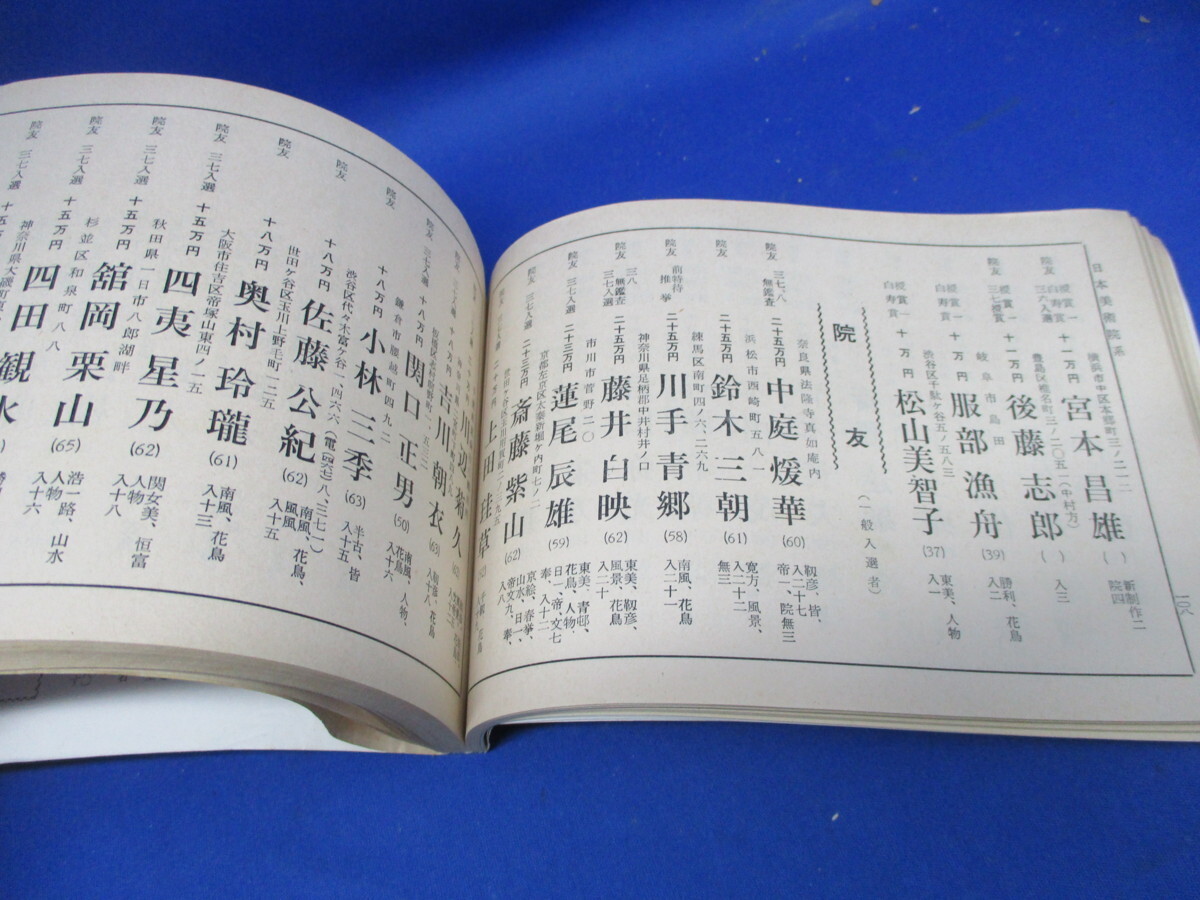 日本美術院系
横浜市中区本郷町三ノ二一二
宮本昌雄
( )
新制作二
院四
院友 授賞一
三六入選 白寿賞一
十一万円
豊島区椎名町三ノ二〇五一(中村方)
後藤志郎
( )
入三
院友 授賞一
三七授賞
十一万円
岐阜市島田
服部漁舟
(39)
勝利、花鳥
入二
授賞一
白寿賞一
十万円
渋谷区千駄ケ谷五ノ五八三
松山美智子
(37)
東美、人物
入一
院友
(一般入選者)
院友 三七、八
無鑑査
二十五万円
奈良県法隆寺真如庵内
中庭煖華
(60)
靱彦、皆、
入二十七
帝一、院無三
院友
二十五万円
浜松市西崎町五八一
鈴木三朝
(61)
寛方、風景、
入二十二
無三
院友 前特待
推挙
二十五万円
練馬区南町四ノ六、二六九
川手青郷
(58)
南風、花鳥
入二十一
院友 三八無鑑査
三七入選
二十五万円
神奈川県足柄郡中井村井ノ口
藤井白映
(62)
東美、靱彦、
風景、花鳥
入二十
院友 三七入選
二十三万円
市川市菅野二〇
蓮尾辰雄
(59)
東美、青邨、
花鳥、人物、
日一、帝文七
奉、入十二
院友 三七入選
二十三万円
京都左京区太秦新堀ケ内町七ノ二
斎藤紫山
(62)
京絵、春挙、
山水、日一、
帝文九、奉、
入八
上田
草
院友 三七入選
十八万円
吉川朝衣
(63)
院友
十八万円
関口正男
(50)
南風、人物、
花鳥
入十六
院友
十八万円
鎌倉市腰越町四九二
小林三季
(63)
半古、皆
入十五
院友
十八万円
渋谷区代々木富ケ谷一、四六六
佐藤公紀
(62)
南風、花鳥、
風景、
入十五
院友 三七入選
十八万円
世田ケ谷区玉川上野毛町一二五
奥村玲瓏
(61)
南風、花鳥
入十三
院友 三七入選
十五万円
大阪市住吉区帝塚山東四ノ一五
四夷星乃
(62)
関女美、恒富
人物、
入十八
院友 三七入選
十五万円
秋田県一日市八郎湖畔
舘岡栗山
(65)
浩一路、山水
人物
入十六
院友
十五万円
杉並区和泉町八八
四田観水
神奈川県大磯町